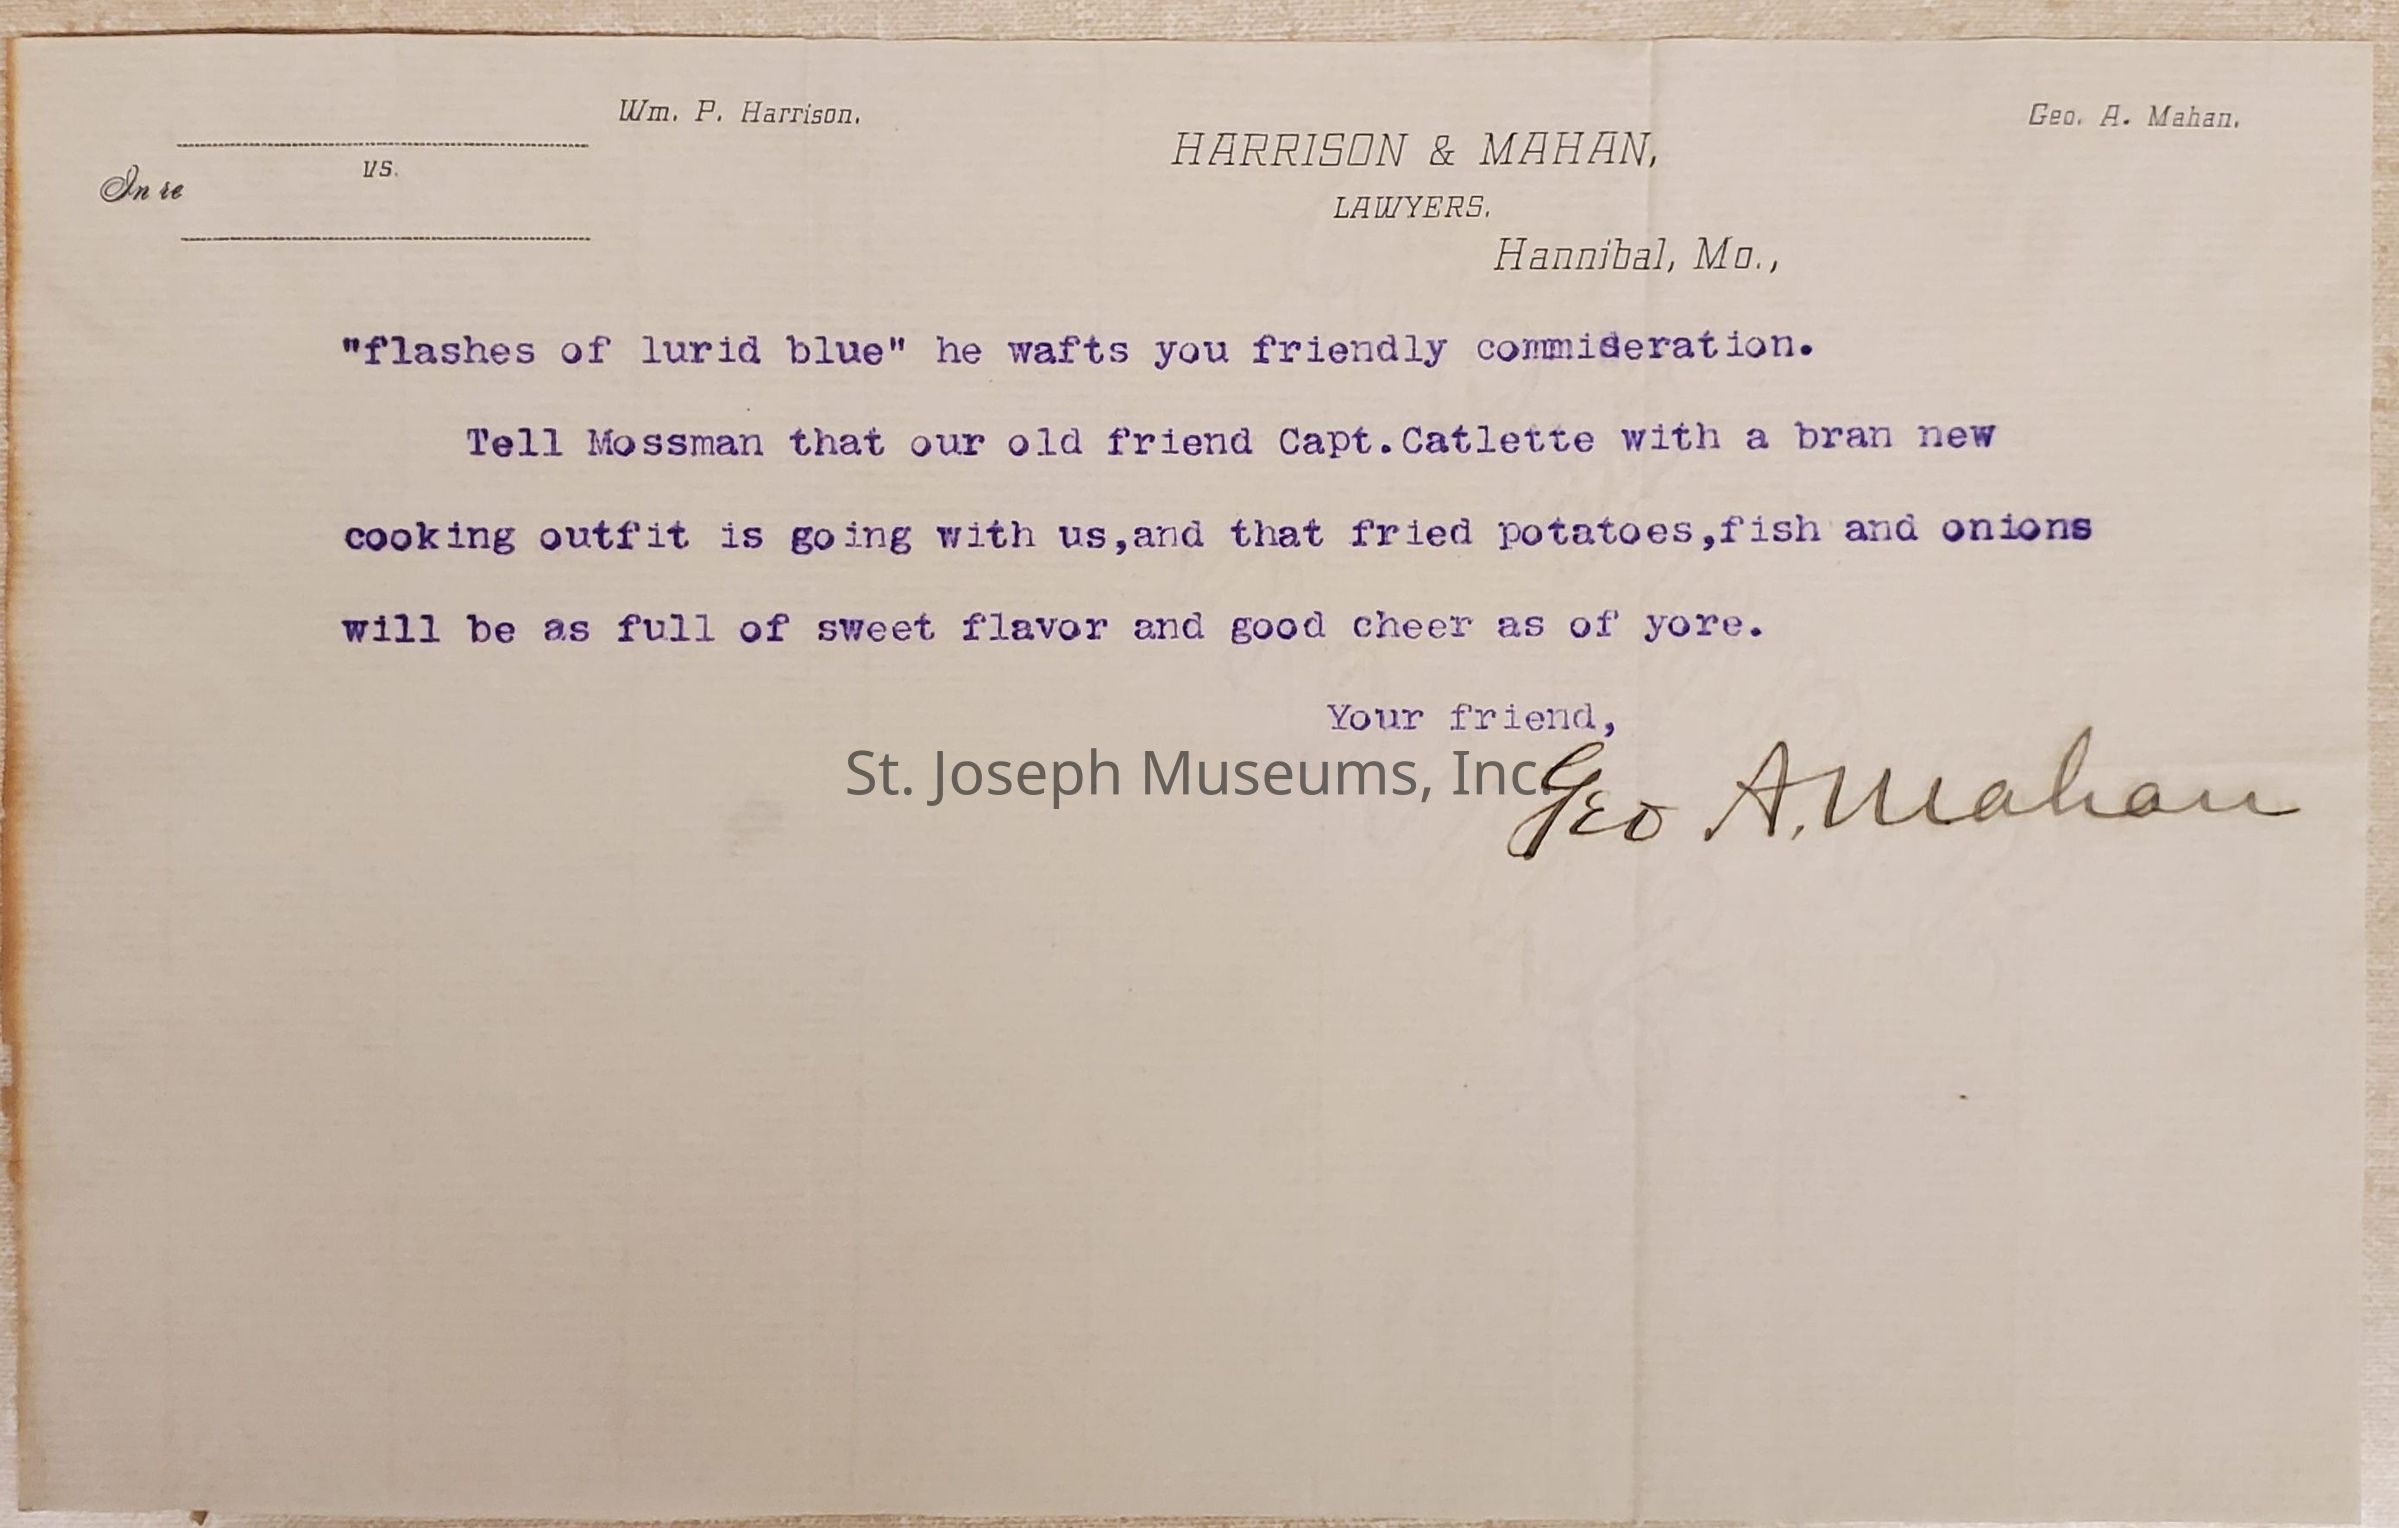 Wm. P. Harrison.
Geo. A. Mahan.
HARRISON & MAHAN,
LAWYERS.
In re
vs.
Hannibal, Mo.,
"flashes of lurid blue" he wafts you friendly commiseration.
Tell Mossman that our old friend Capt.Catlette with a bran new
cooking outfit is going with us,and that fried potatoes,fish and onions
will be as full of sweet flavor and good cheer as of yore.
Your friend,
St. Joseph Museums, Inc.
Geo A. Mahan